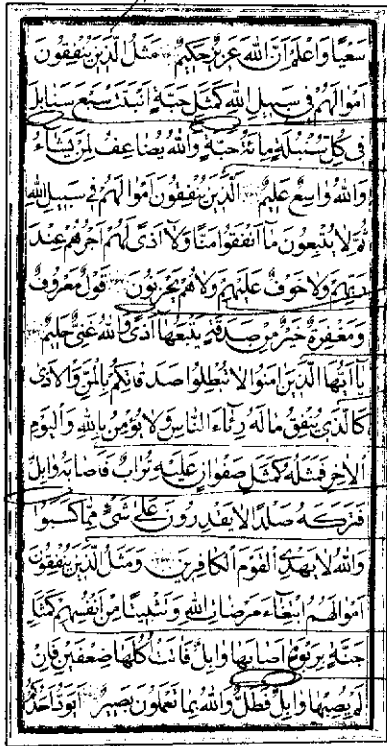 سَعْيًا وَاعْلَمْ اَنَّ اللهَ عَزِيزٌ حَكِيمٌ مَثَلُ الَّذِينَ يُنْفِقُونَ
اَمْوَالَهُمْ فِي سَبِيلِ اللهِ كَمَثَلِ حَبَّةٍ اَنْبَتَتْ سَبْعَ سَنَابِلَ
فِي كُلِّ سُنْبُلَةٍ مِائَةُ حَبَّةٍ وَاللهُ يُضَاعِفُ لِمَنْ يَشَاءُ
وَاللهُ وَاسِعٌ عَلِيمٌ اَلَّذِينَ يُنْفِقُونَ اَمْوَالَهُمْ فِي سَبِيلِ اللهِ
ثُمَّ لَا يُتْبِعُونَ مَا اَنْفَقُوا مَنًّا وَلَا اَذًى لَهُمْ اَجْرُهُمْ عِنْدَ
رَبِّهِمْ وَلَا خَوْفٌ عَلَيْهِمْ وَلَا هُمْ يَحْزَنُونَ قَوْلٌ مَعْرُوفٌ
وَمَغْفِرَةٌ خَيْرٌ مِنْ صَدَقَةٍ يَتْبَعُهَا اَذًى وَاللهُ غَنِيٌّ حَلِيمٌ
يَا اَيُّهَا الَّذِينَ اٰمَنُوا لَا تُبْطِلُوا صَدَقَاتِكُمْ بِالْمَنِّ وَالْاَذٰى
كَالَّذِي يُنْفِقُ مَالَهُ رِئَاءَ النَّاسِ وَلَا يُؤْمِنُ بِاللهِ وَالْيَوْمِ
الْاٰخِرِ فَمَثَلُهُ كَمَثَلِ صَفْوَانٍ عَلَيْهِ تُرَابٌ فَاَصَابَهُ وَابِلٌ
فَتَرَكَهُ صَلْدًا لَا يَقْدِرُونَ عَلٰى شَيْءٍ مِمَّا كَسَبُوا
وَاللهُ لَا يَهْدِي الْقَوْمَ الْكَافِرِينَ وَمَثَلُ الَّذِينَ يُنْفِقُونَ
اَمْوَالَهُمُ ابْتِغَاءَ مَرْضَاتِ اللهِ وَتَثْبِيتًا مِنْ اَنْفُسِهِمْ كَمَثَلِ
جَنَّةٍ بِرَبْوَةٍ اَصَابَهَا وَابِلٌ فَاٰتَتْ اُكُلَهَا ضِعْفَيْنِ فَاِنْ
لَمْ يُصِبْهَا وَابِلٌ فَطَلٌّ وَاللهُ بِمَا تَعْمَلُونَ بَصِيرٌ اَيَوَدُّ اَحَدُكُمْ